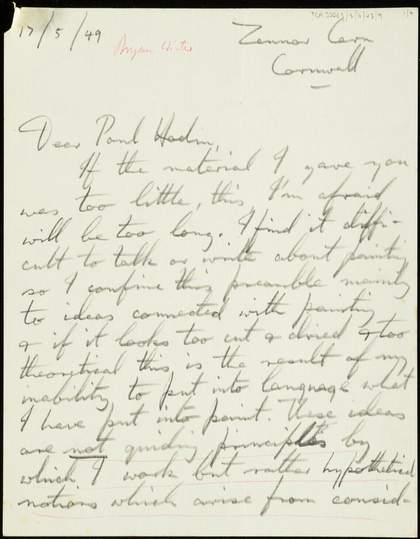 17/5/49
Bryan Winter
Zennor Carn
Cornwall
Dear Paul Hodin,
If the material I gave you
was too little, this I'm afraid
will be too long. I find it diffi-
cult to talk or write about painting
so I confine this preamble mainly
to ideas connected with painting
& if it looks too cut & dried & too
theoretical this is the result of my
inability to put into language what
I have put into paint. These ideas
are not guiding principles by
which I work but rather hypothetical
notions which arise from consid-